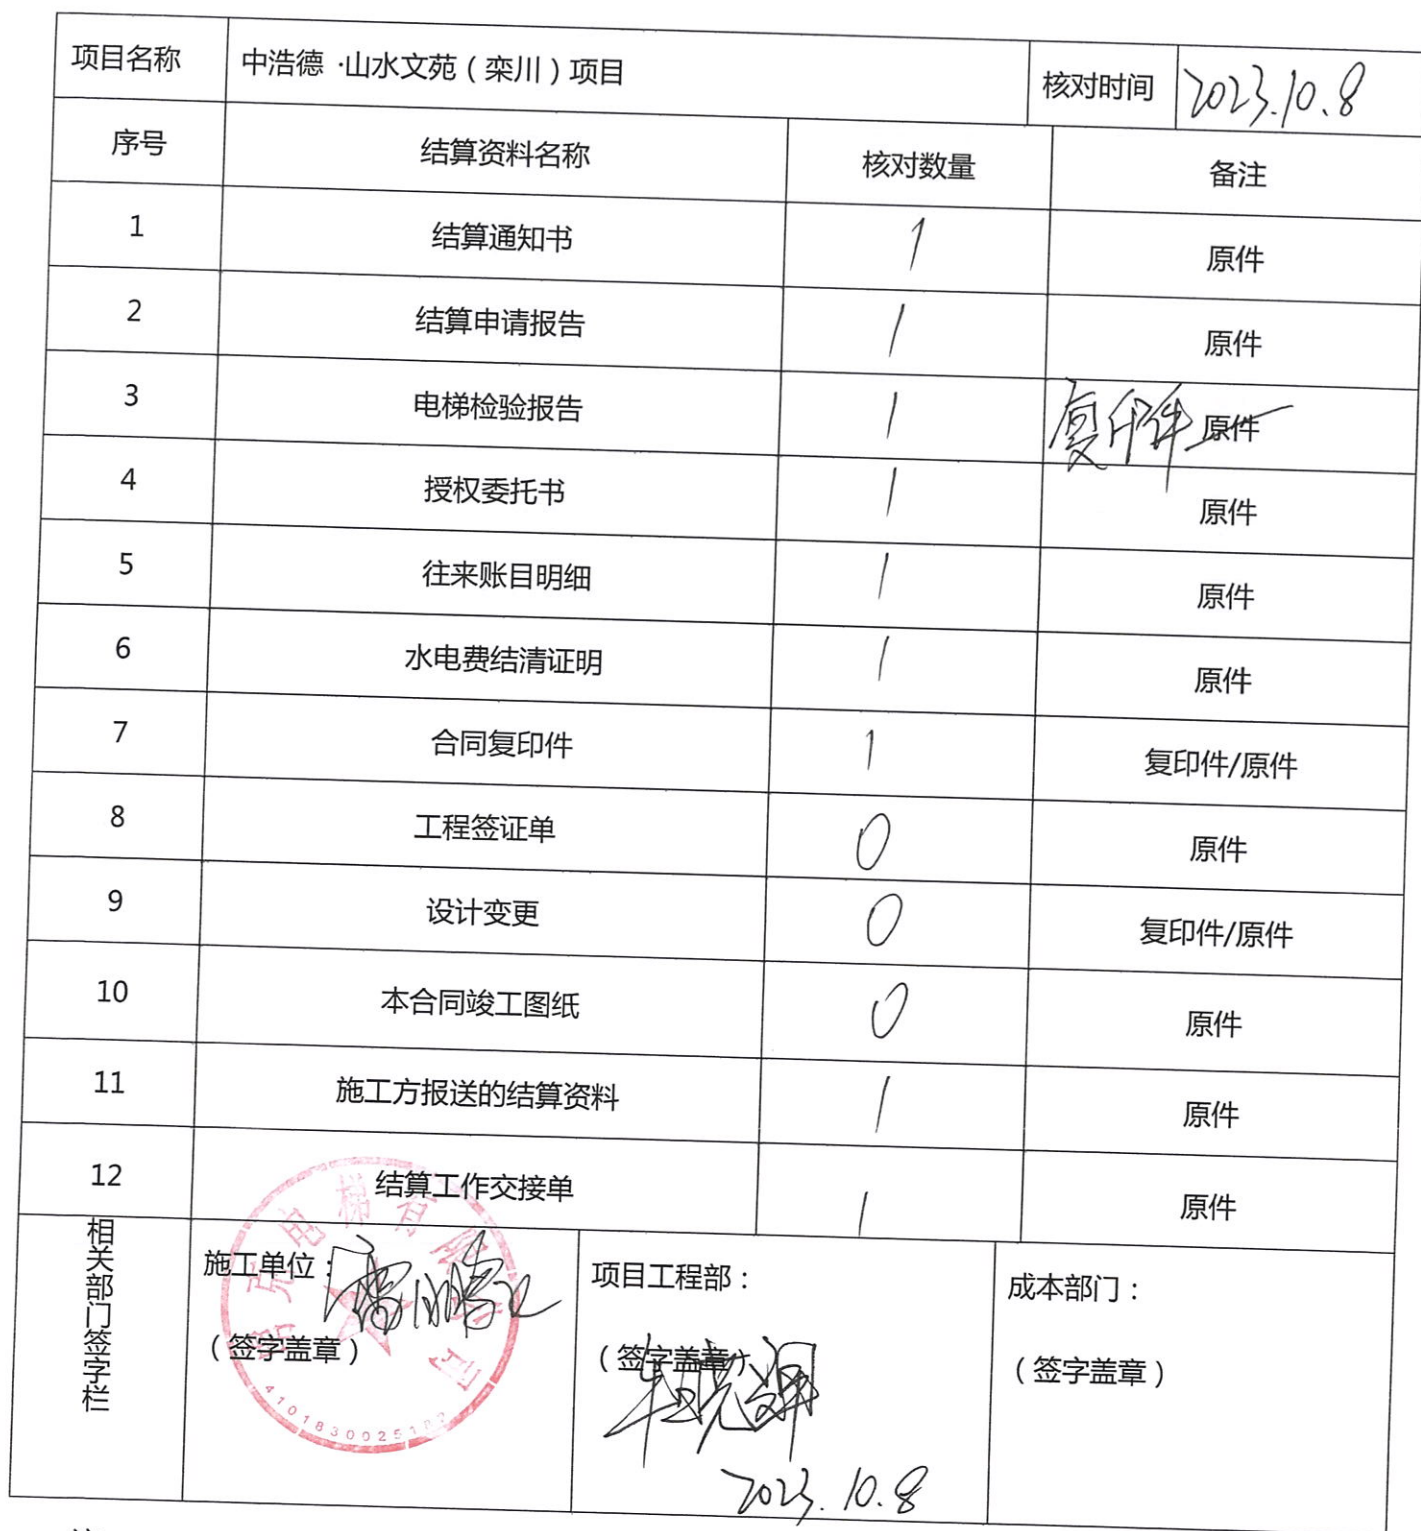 项目名称 中浩德·山水文苑（栾川）项目 核对时间 2023.10.8
序号 结算资料名称 核对数量 备注
1 结算通知书 1 原件
2 结算申请报告 1 原件
3 电梯检验报告 1 复印件 原件
4 授权委托书 1 原件
5 往来账目明细 1 原件
6 水电费结清证明 1 原件
7 合同复印件 1 复印件/原件
8 工程签证单 0 原件
9 设计变更 0 复印件/原件
10 本合同竣工图纸 0 原件
11 施工方报送的结算资料 1 原件
12 结算工作交接单 1 原件
相关部门签字栏
施工单位： 项目工程部： 成本部门：
（签字盖章） （签字盖章） （签字盖章）
2023.10.8